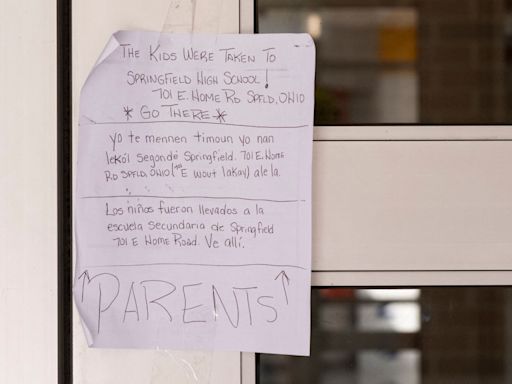 THE KIDS WERE TAKEN TO
SPRINGFIELD HIGH SCHOOL!
701 E. HOME RD SPFLD, OHIO
* GO THERE *
yo te mennen timoun yo nan
lekól segondè Springfield. 701 E. HOME
RD SPFLD, OHIO ( E wout lakay) ale la.
Los niños fueron llevados a la
escuela secundaria de Springfield
701 E HOME ROAD. Ve allí.
↑PARENTS↑